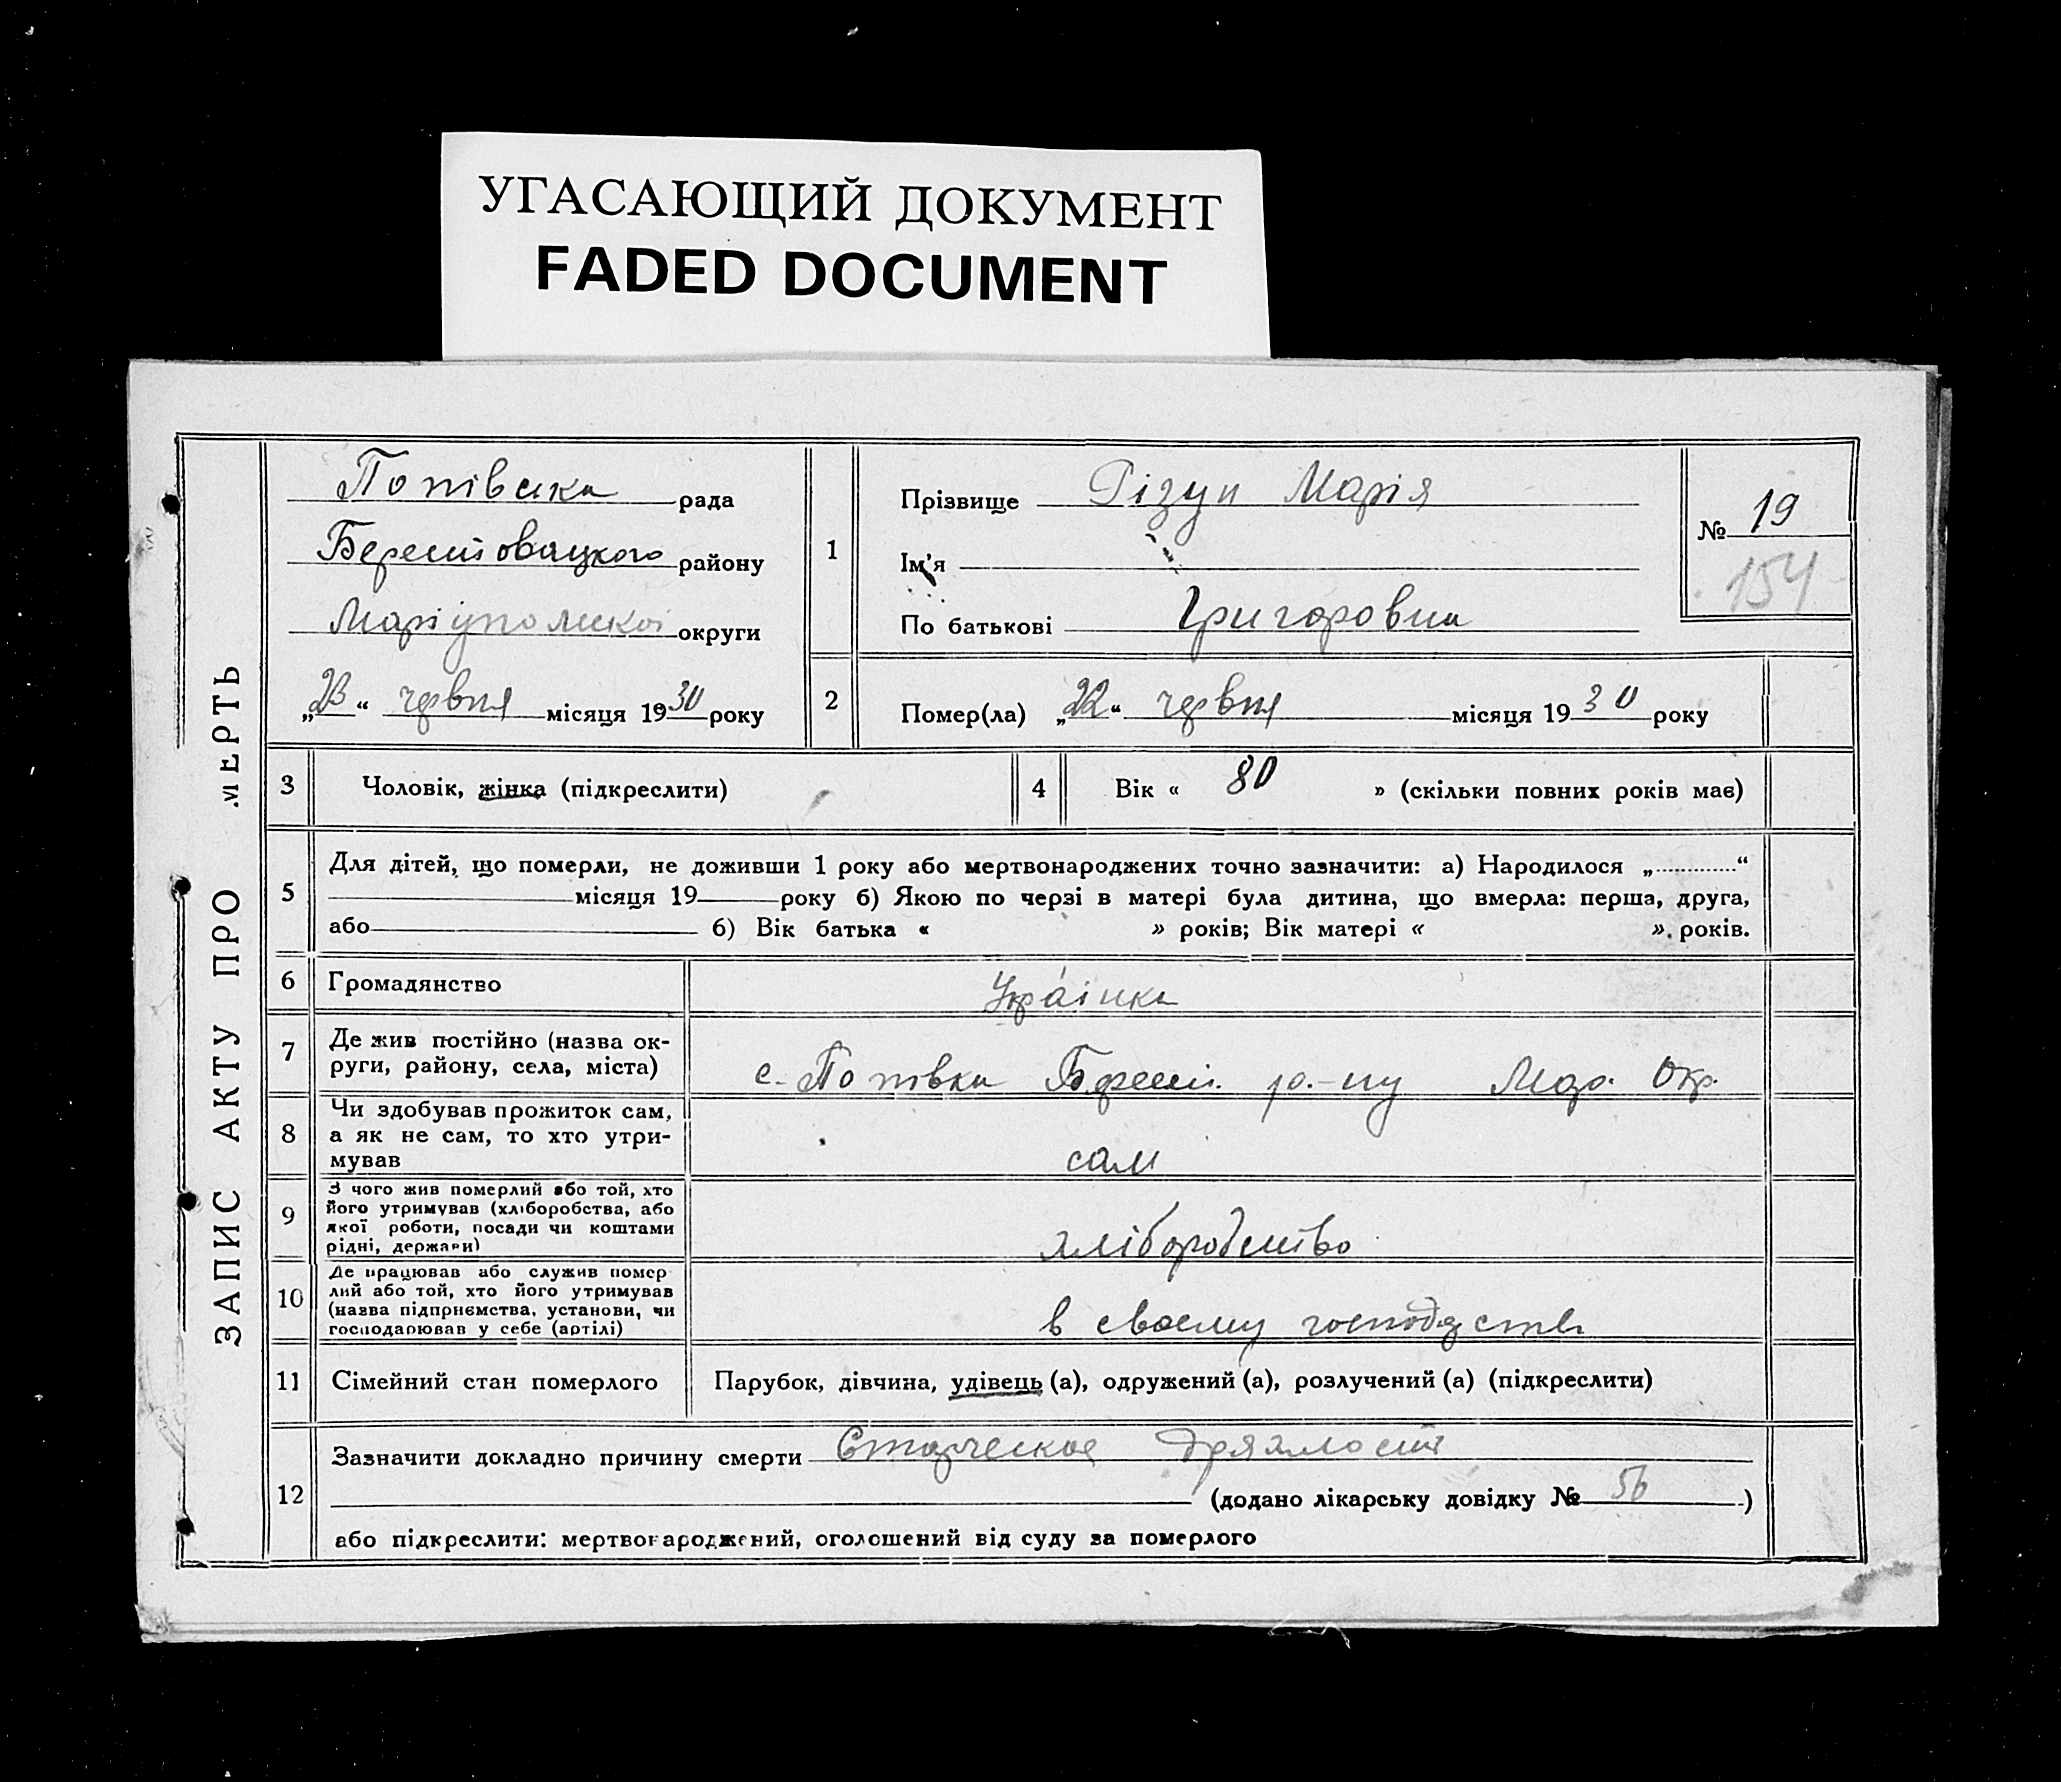 УГАСАЮЩИЙ ДОКУМЕНТ
FADED DOCUMENT
ЗАПИС АКТУ ПРО СМЕРТЬ
Попівська рада
Берестовацкого району
Маріупольскої округи
„23“ червня місяця 1930 року
1
Прізвище Різун Марія
Ім'я
По батькові Григоровна
№ 19
154
2
Помер(ла) „22“ червня місяця 1930 року
3 Чоловік, жінка (підкреслити)
4 Вік « 80 » (скільки повних років має)
5
Для дітей, що померли, не доживши 1 року або мертвонароджених точно зазначити: а) Народилося „............“
місяця 19 року б) Якою по черзі в матері була дитина, що вмерла: перша, друга,
або б) Вік батька « » років; Вік матері « ». років.
6 Громадянство Украінка
7 Де жив постійно (назва ок-
руги, району, села, міста)
с. Попівка Берест. р.-ну Мар. Окр.
8 Чи здобував прожиток сам,
а як не сам, то хто утри-
мував
сам
9 З чого жив померлий або той, хто
його утримував (хліборобства, або
якої роботи, посади чи коштами
рідні, держави)
хліборобство
10 Де працював або служив помер
лий або той, хто його утримував
(назва підприємства, установи, чи
господарював у себе (артілі)
в своему господ
11 Сімейний стан померлого Парубок, дівчина, удівець (а), одружений (а), розлучений (а) (підкреслити)
12
Зазначити докладно причину смерти Старческая дряхлость
(додано лікарську довідку № 56 )
або підкреслити: мертвонароджений, оголошений від суду за померлого